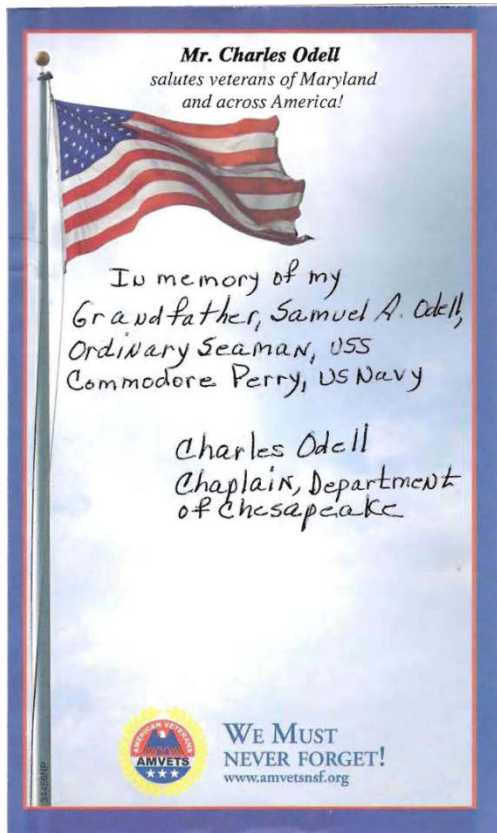 Mr. Charles Odell
salutes veterans of Maryland
and across America!
In memory of my
Grandfather, Samuel A. Odell,
Ordinary Seaman, USS
Commodore Perry, US Navy
Charles Odell
Chaplain, Department
of Chesapeake
AMERICAN VETERANS
AMVETS
WE MUST
NEVER FORGET!
www.amvetsnsf.org